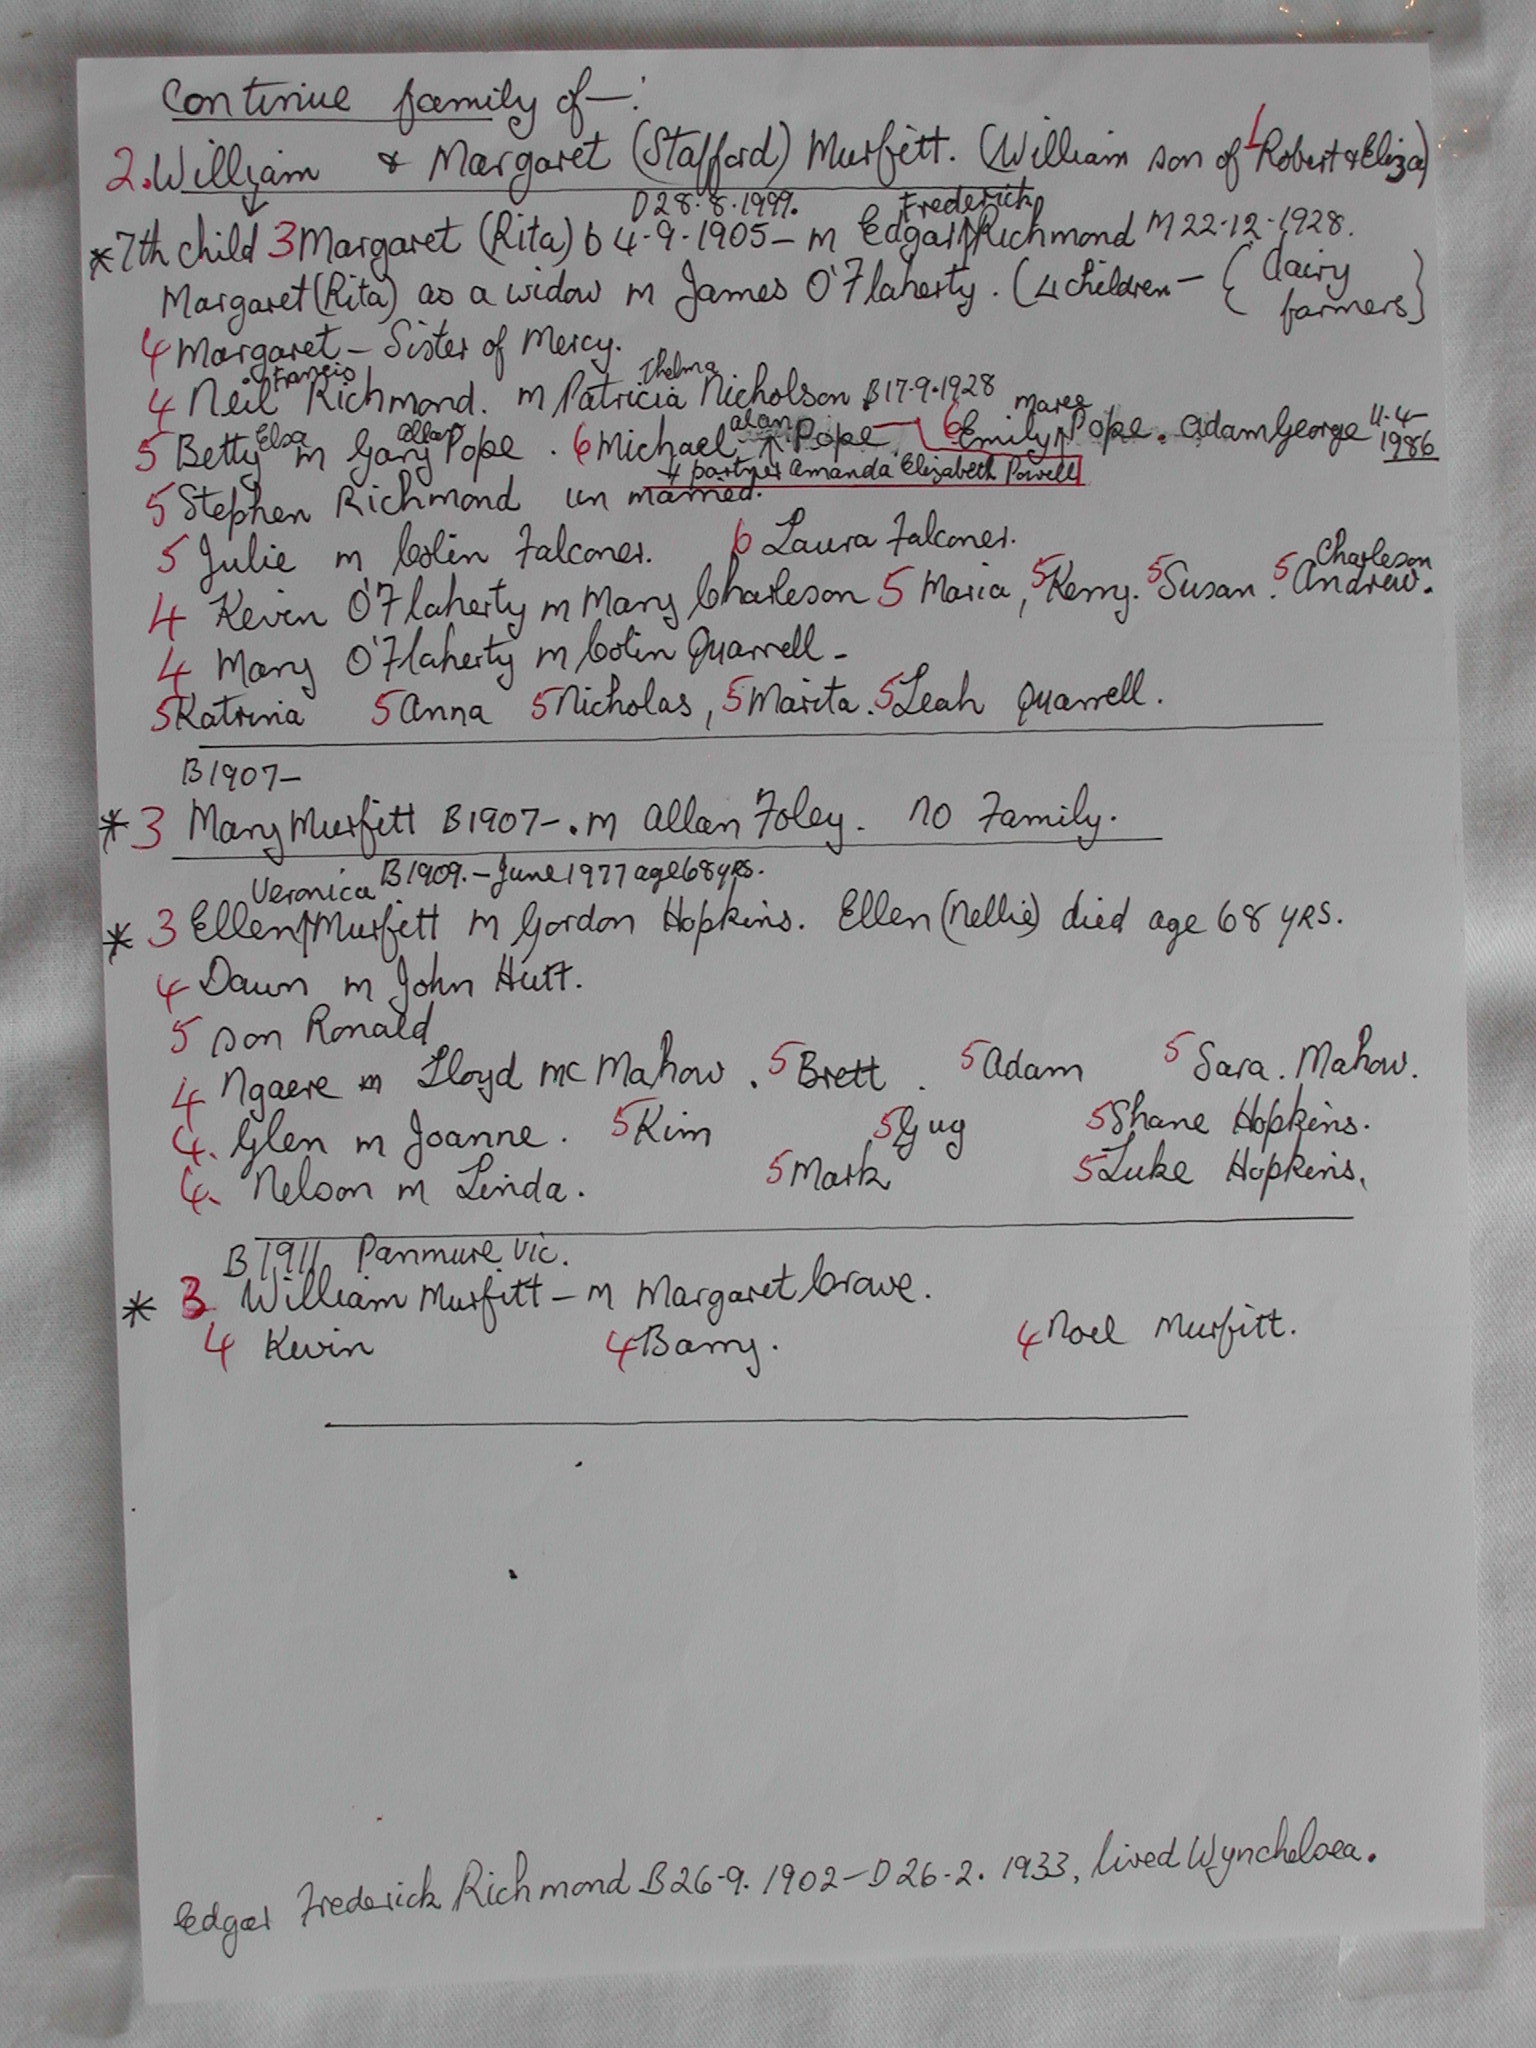 Continue family of —:
2. William & Margaret (Stafford) Murfitt. (William son of 1 Robert & Eliza)
D 28.8.1999. Frederick
*7th child 3 Margaret (Rita) b 4-9-1905 — m Edgar Richmond M 22-12-1928.
Margaret (Rita) as a widow m James O'Flaherty. (4 children — { dairy farmers }
4 Margaret — Sister of Mercy.
Francis Thelma
4 Neil Richmond. m Patricia Nicholson B 17-9-1928
Elsa Allan alan maree
5 Betty m Gary Pope. 6 Michael Pope — 6 Emily Pope. Adam George 11-4-1986
+ partner Amanda Elizabeth Powell
5 Stephen Richmond un married.
5 Julie m Colin Falconer. 6 Laura Falconer.
Charleson
4 Kevin O'Flaherty m Mary Charleson 5 Maria, 5 Kerry. 5 Susan. 5 Andrew.
4 Mary O'Flaherty m Colin Quarrell —
5 Katrina 5 Anna 5 Nicholas, 5 Marita. 5 Leah Quarrell.
B 1907 —
* 3 Mary Murfitt B 1907 —. m Allan Foley. No Family.
Veronica B 1909. — June 1977 age 68 yrs.
* 3 Ellen Murfitt m Gordon Hopkins. Ellen (Nellie) died age 68 yrs.
4 Dawn m John Hutt.
5 son Ronald
4 Ngaere m Lloyd Mc Mahow. 5 Brett. 5 Adam 5 Sara. Mahow.
4. Glen m Joanne. 5 Kim 5 Gug 5 Shane Hopkins.
4. Nelson m Linda. 5 Mark 5 Luke Hopkins.
B 1911 Panmure Vic.
* 3 William Murfitt — m Margaret Crowe.
4 Kevin 4 Barry. 4 Noel Murfitt.
Edgar Frederick Richmond B 26-9. 1902 — D 26-2. 1933, lived Wynchelsea.